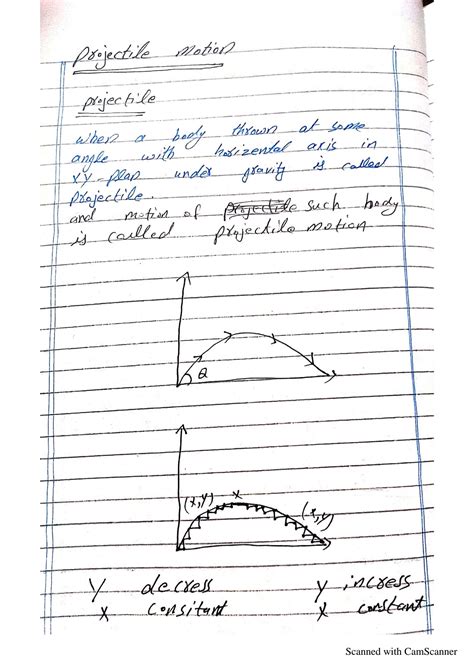 Projectile motion
projectile
when a body thrown at some
angle with horizental axis in
XY-plan under gravity is called
Projectile.
and motion of projectile such body
is called projectile motion
θ
(x,y) x (x,y)
Y decress y incress
x consitant x constant
Scanned with CamScanner